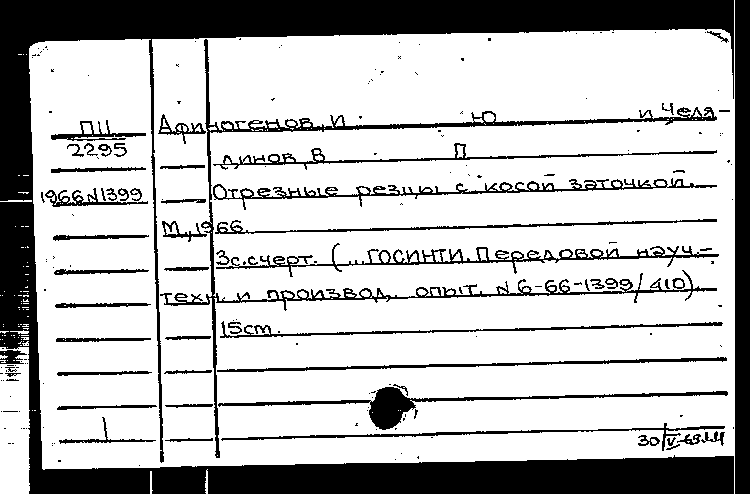 ПЦ Афиногенов, И Ю и Челя-
2295 динов, В П
1966 N1399 Отрезные резцы с косой заточкой.
М., 1966.
3с. с черт. (...ГОСИНТИ. Передовой науч.-
техн. и производ. опыт. N 6-66-1399/410).
15cm.
30/V-69